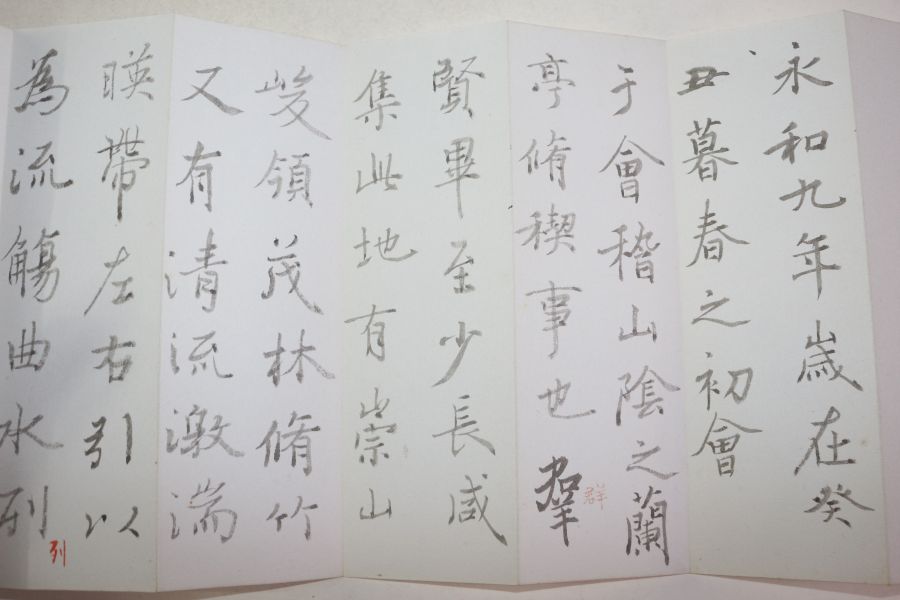 永和九年歳在癸
丑暮春之初會
于會稽山陰之蘭
亭脩稧事也羣
群
賢畢至少長咸
集此地有崇山
峻領茂林脩竹
又有清流激湍
暎帶左右引以
為流觴曲水列
列